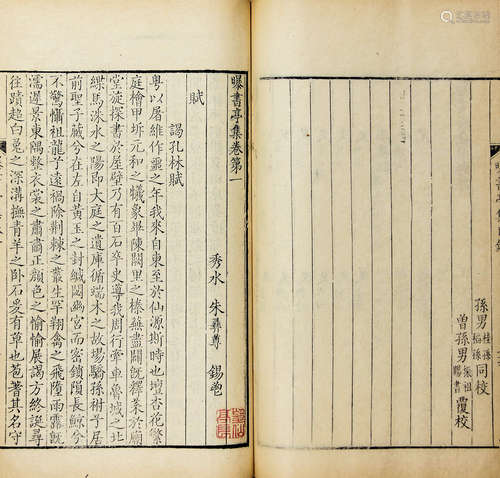 孫男桂孫稻孫同校
曾孫男振祖賜書覆校
曝書亭集卷第一
秀水 朱彝尊 錫鬯
賦
謁孔林賦
粵以屠維作噩之年我來自東至於仙源斯時也壇杏花繁
庭檜甲坼元和之犧象畢陳闕里之榛蕪盡闢既釋菜於廟
堂旋探書於屋壁乃有百石卒史導我周行牽車魯城之北
緤馬洙水之陽即大庭之遺庫循端木之故場驕孫祔子居
前聖子藏兮在左自黃玉之封緘閟幽宮而密鎖隕長鯨兮
不驚懾祖龍子遠禍除荆棘之叢生罕翔禽之飛墮雨露既
濡遲景東隅整衣裳之肅肅正顏色之愉愉展謁方終誕尋
往蹟超白兔之深溝撫青羊之臥石爰有草也苞蓍其名守